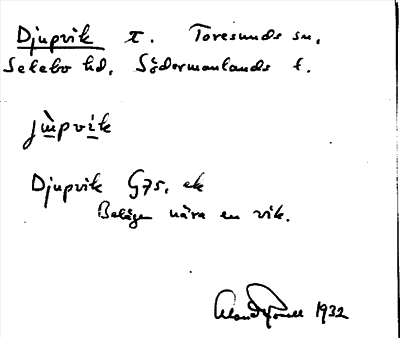 Djupvik t. Toresunds sn.
Selebo hd, Södermanlands l.
jùpvik
Djupvik G75. ek
Belägen nära en vik.
1932